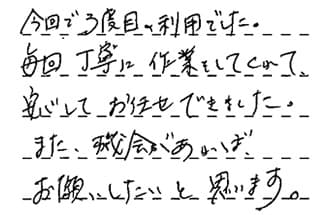 今回で3度目の利用でした。
毎回 丁寧に 作業をしてくれて、
安心して お任せできました。
また、機会があれば、
お願いしたいと 思います。